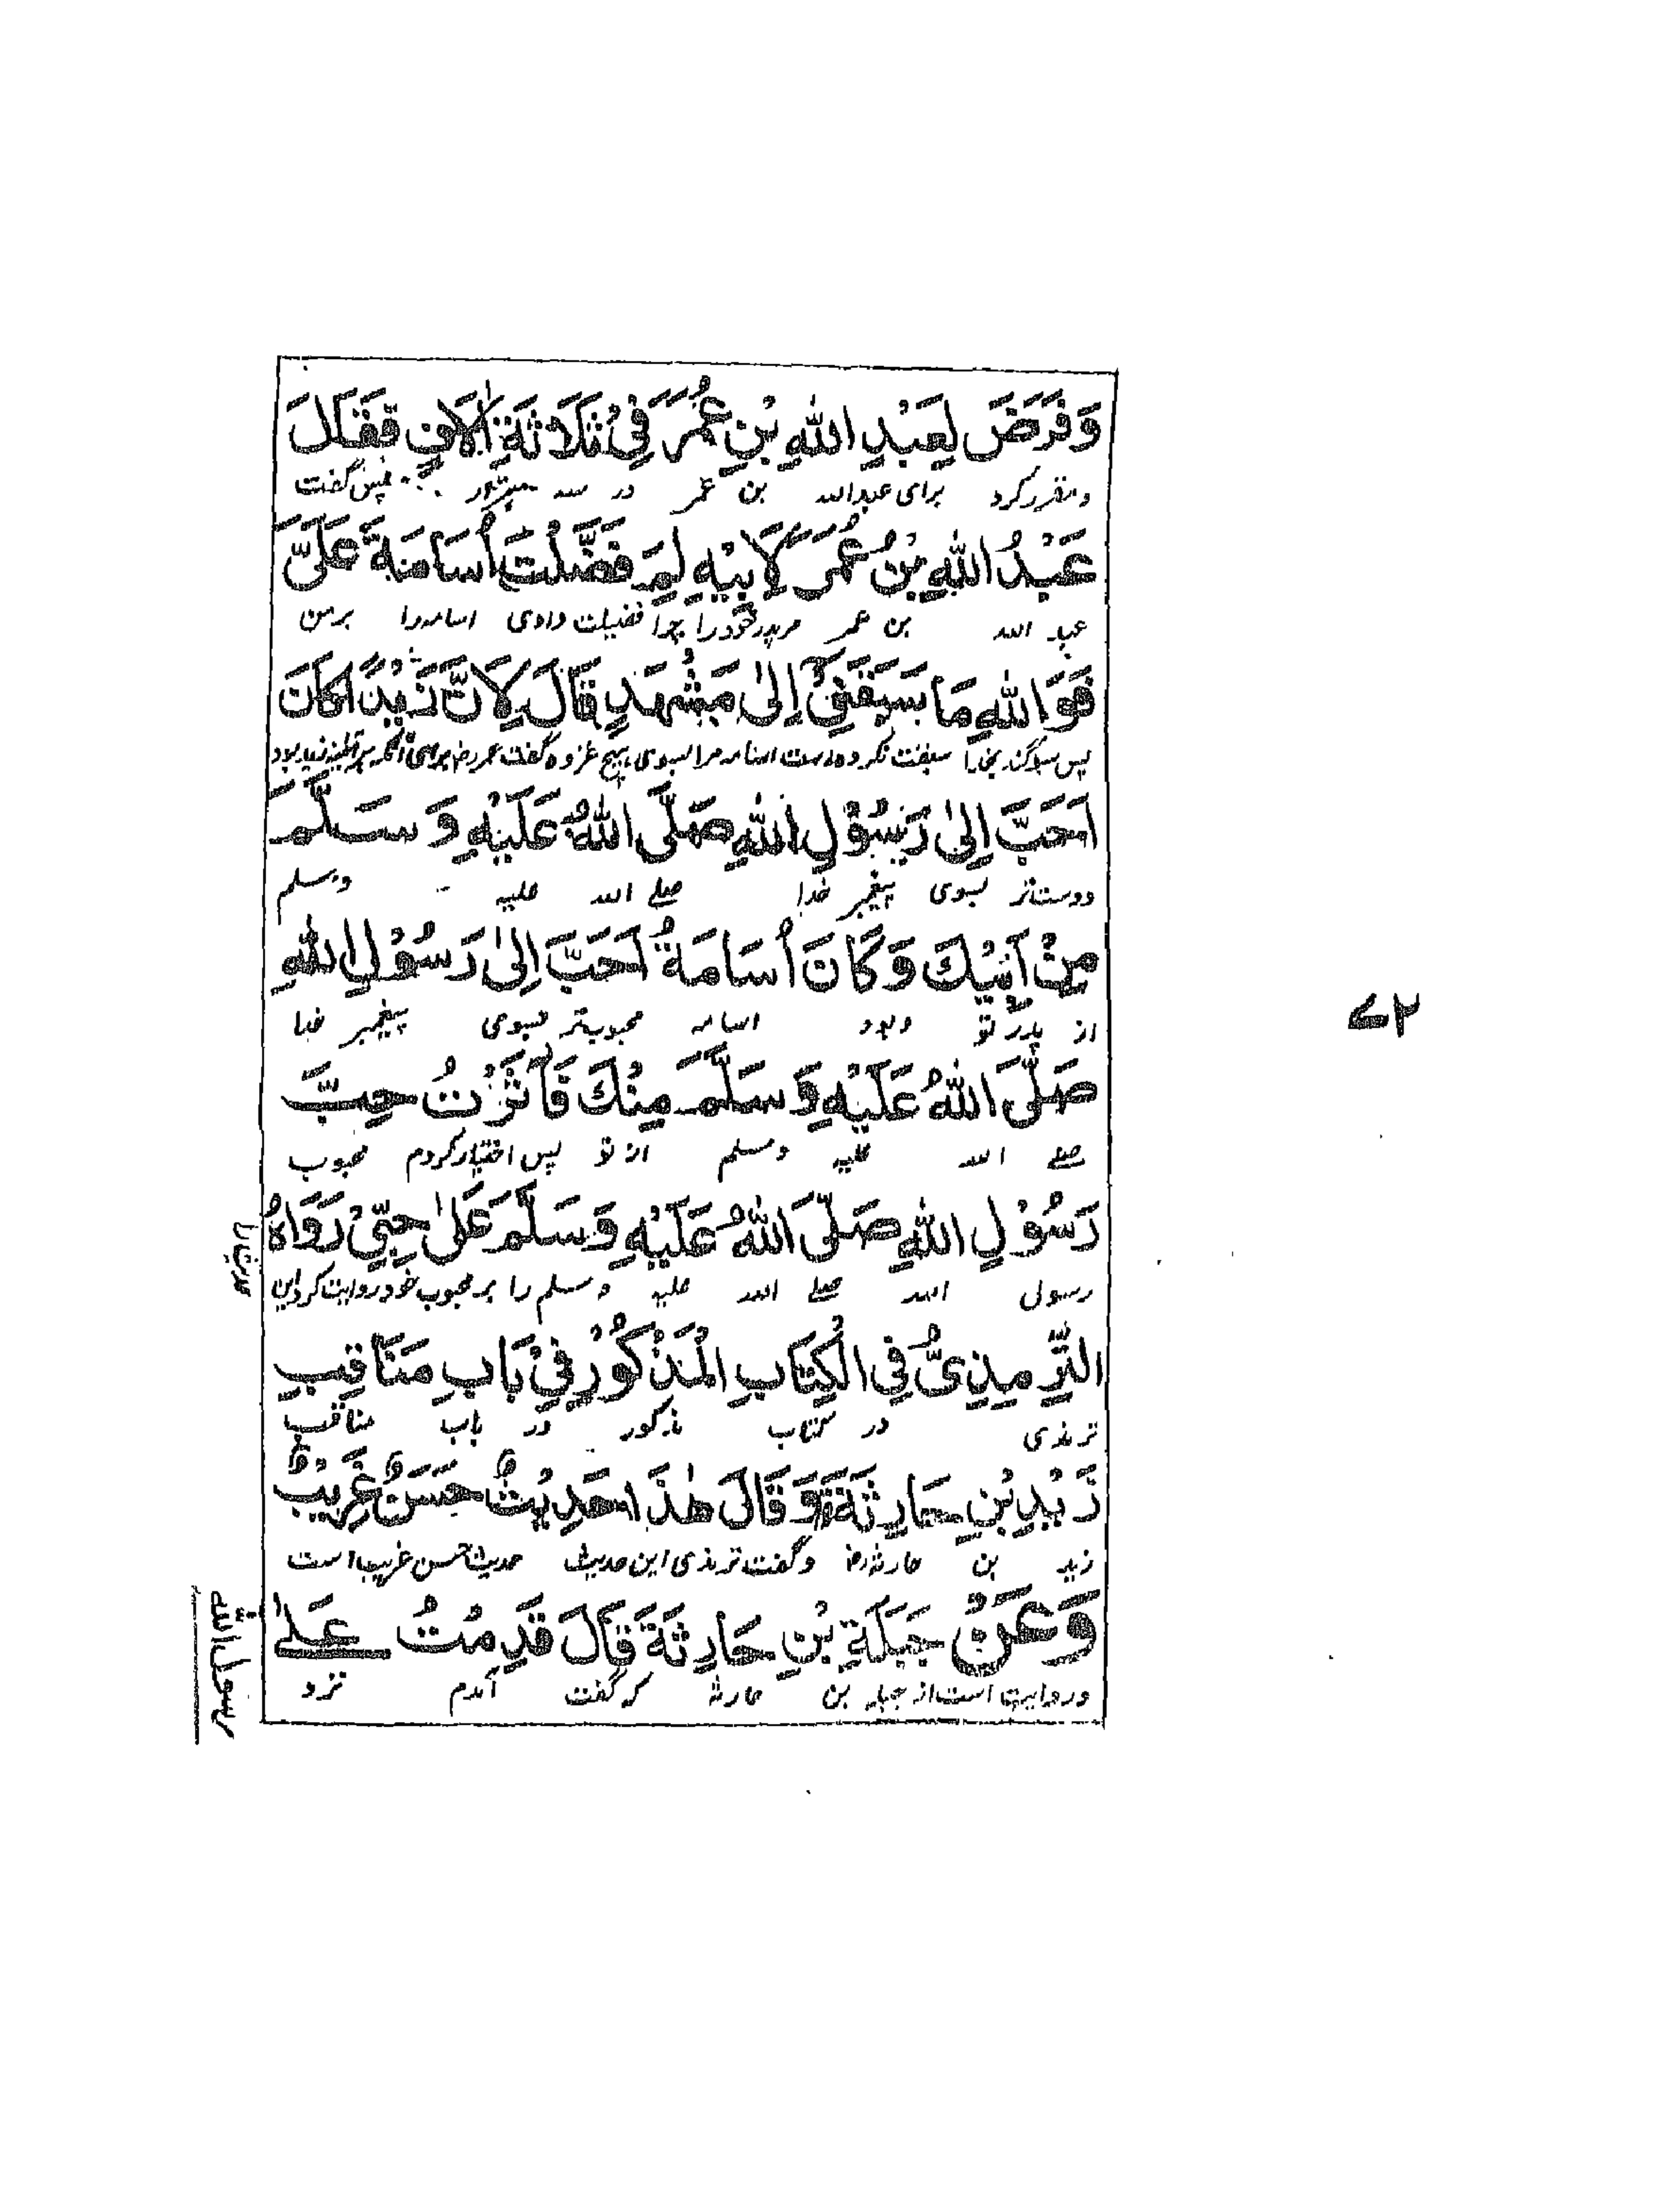 وَفَرَضَ لِعَبْدِ اللهِ بْنِ عُمَرَ فِيْ ثَلَاثَةِ اٰلَافٍ فَقَالَ
ومقرر کرد برای عبدالله بن عمر در سه پس گفت
عَبْدُ اللهِ بْنُ عُمَرَ لِاَبِيْهِ لِمَ فَضَّلْتَ اُسَامَةَ عَلَيَّ
عبد الله بن عمر مرپدر خود را چرا فضیلت دادی اسامه را برمن
فَوَاللهِ مَا سَبَقَنِيْ اِلىٰ مَشْهَدٍ قَالَ لِاَنَّ زَيْدًا كَانَ
پس سوگند بخدا سبقت نکرده است اسامه مرا بسوی هیچ غزوه گفت عمر رض برای آنکه زید بود
اَحَبَّ اِلىٰ رَسُوْلِ اللهِ صَلَّى اللهُ عَلَيْهِ وَسَلَّمَ
دوست‌تر بسوی پیغمبر خدا صلے الله علیه وسلم
مِنْ اَبِيْكَ وَكَانَ اُسَامَةُ اَحَبَّ اِلىٰ رَسُوْلِ اللهِ
از پدر تو وبود اسامه محبوب‌تر بسوی پیغمبر خدا
صَلَّى اللهُ عَلَيْهِ وَسَلَّمَ مِنْكَ فَاٰثَرْتُ حِبَّ
صلے الله علیه وسلم از تو پس اختیار کردم محبوب
رَسُوْلِ اللهِ صَلَّى اللهُ عَلَيْهِ وَسَلَّمَ عَلىٰ حِبِّيْ رَوَاهُ
رسول الله صلے الله علیه وسلم را بر محبوب خود روایت کرد این
حدیث را
التِّرْمِذِىُّ فِى الْكِتَابِ الْمَذْكُوْرِ فِيْ بَابِ مَنَاقِبِ
ترمذی در کتاب مذکور در باب مناقب
زَيْدِ بْنِ حَارِثَةَ وَقَالَ هٰذَا حَدِيْثٌ حَسَنٌ غَرِيْبٌ
زید بن حارثه رض وگفت ترمذی این حدیث حدیث حسن غریب است
وَعَنْ جَبَلَةَ بْنِ حَارِثَةَ قَالَ قَدِمْتُ عَلىٰ
وروایت است از جبله بن حارثه که گفت آمدم نزد
رسول الله
۷۲